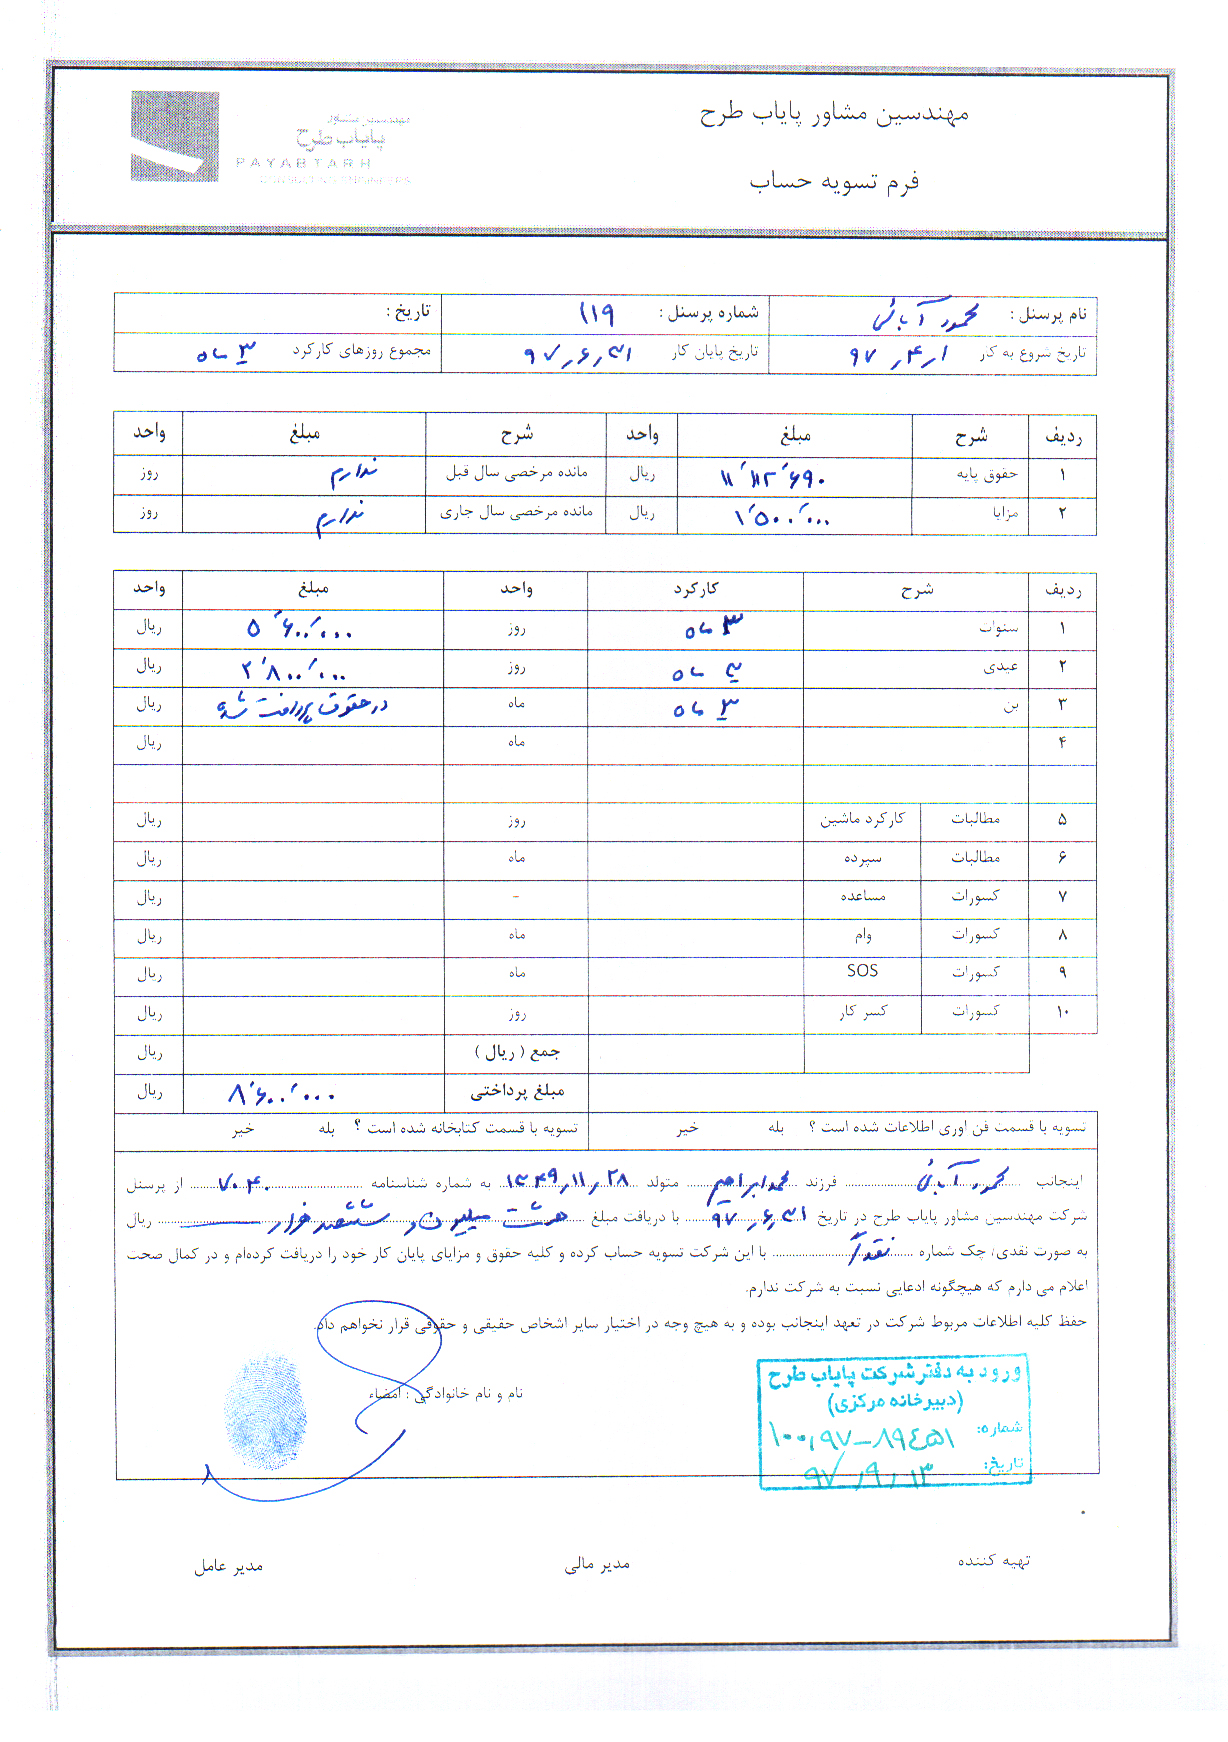 مهندسین مشاور پایاب طرح
مهندسین مشاور
پایاب طرح
PAYABTARH
CONSULTING ENGINEERS
فرم تسویه حساب
نام پرسنل : محمود آبائی شماره پرسنل : ۱۱۹ تاریخ :
تاریخ شروع به کار ۹۷٫۴٫۱ تاریخ پایان کار ۹۷٫۶٫۳۱ مجموع روزهای کارکرد ۳ ماه
ردیف شرح مبلغ واحد شرح مبلغ واحد
۱ حقوق پایه ۱۱٬۱۱۲٬۶۹۰ ریال مانده مرخصی سال قبل ندارم روز
۲ مزایا ۱٬۵۰۰٬۰۰۰ ریال مانده مرخصی سال جاری ندارم روز
ردیف شرح کارکرد واحد مبلغ واحد
۱ سنوات ۳ ماه روز ۵٬۶۰۰٬۰۰۰ ریال
۲ عیدی ۳ ماه روز ۲٬۸۰۰٬۰۰۰ ریال
۳ بن ۳ ماه ماه در حقوق پرداخت شده ریال
۴ ماه ریال
۵ مطالبات کارکرد ماشین روز ریال
۶ مطالبات سپرده ماه ریال
۷ کسورات مساعده - ریال
۸ کسورات وام ماه ریال
۹ کسورات SOS ماه ریال
۱۰ کسورات کسر کار روز ریال
جمع ( ریال ) ریال
مبلغ پرداختی ۸٬۶۰۰٬۰۰۰ ریال
تسویه با قسمت فن اوری اطلاعات شده است ؟ بله خیر تسویه با قسمت کتابخانه شده است ؟ بله خیر
اینجانب محمود آبائی فرزند محمدابراهیم متولد ۱۳۴۹٫۱۱٫۲۸ به شماره شناسنامه ۷۰۴۰ از پرسنل
شرکت مهندسین مشاور پایاب طرح در تاریخ ۹۷٫۶٫۳۱ با دریافت مبلغ هشت میلیون و ششصد هزار ریال
به صورت نقدی/ چک شماره نقداً با این شرکت تسویه حساب کرده و کلیه حقوق و مزایای پایان کار خود را دریافت کرده‌ام و در کمال صحت
اعلام می دارم که هیچگونه ادعایی نسبت به شرکت ندارم.
حفظ کلیه اطلاعات مربوط شرکت در تعهد اینجانب بوده و به هیچ وجه در اختیار سایر اشخاص حقیقی و حقوقی قرار نخواهم داد.
نام و نام خانوادگی : امضاء
ورود به دفتر شرکت پایاب طرح
(دبیرخانه مرکزی)
شماره: ۱۰۰٫۹۷-۸۹۴۵۱
تاریخ: ۹۷٫۹٫۱۳
تهیه کننده مدیر مالی مدیر عامل